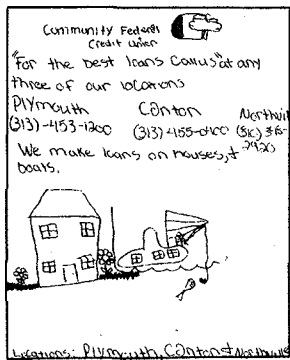 Community Federal
Credit Union
"For the best loans call us" at any
three of our locations
Plymouth Canton
(313)-453-1200 (313)-455-0400
We make loans on houses, +
boats.
Locations: Plymouth, Canton + Northville